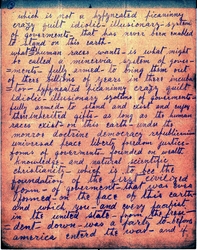 which is not a hypnoated picaninny
crazy guilt idiolic - illusionary - system
of goverments - that has never been enabled
to stand on this earth -
what human races wants - is what might
be called a minervia system of gover-
ments - fully armed - to bring them out
of there billions of years of there incubator
too - hypnoated picaninny crazy guilt
idiolic - illusionary systems of goverments -
fully armed to stand and exist and enjoy
there inherited gifts - as long as the human
races exist - on this earth - under its
monroe doctrine democracy republicanism
universal peace liberty freedom justice -
forms of goverments - founded on wealth
knowledge - and natural scientific
christianity - which is to be the
foundation of the first civilized
form - of goverment - that was ever
formed on the face of this earth
and which you - and every pacifist
in the united states - from the presi-
dent - down - was a party to - before
america entered the war - and if